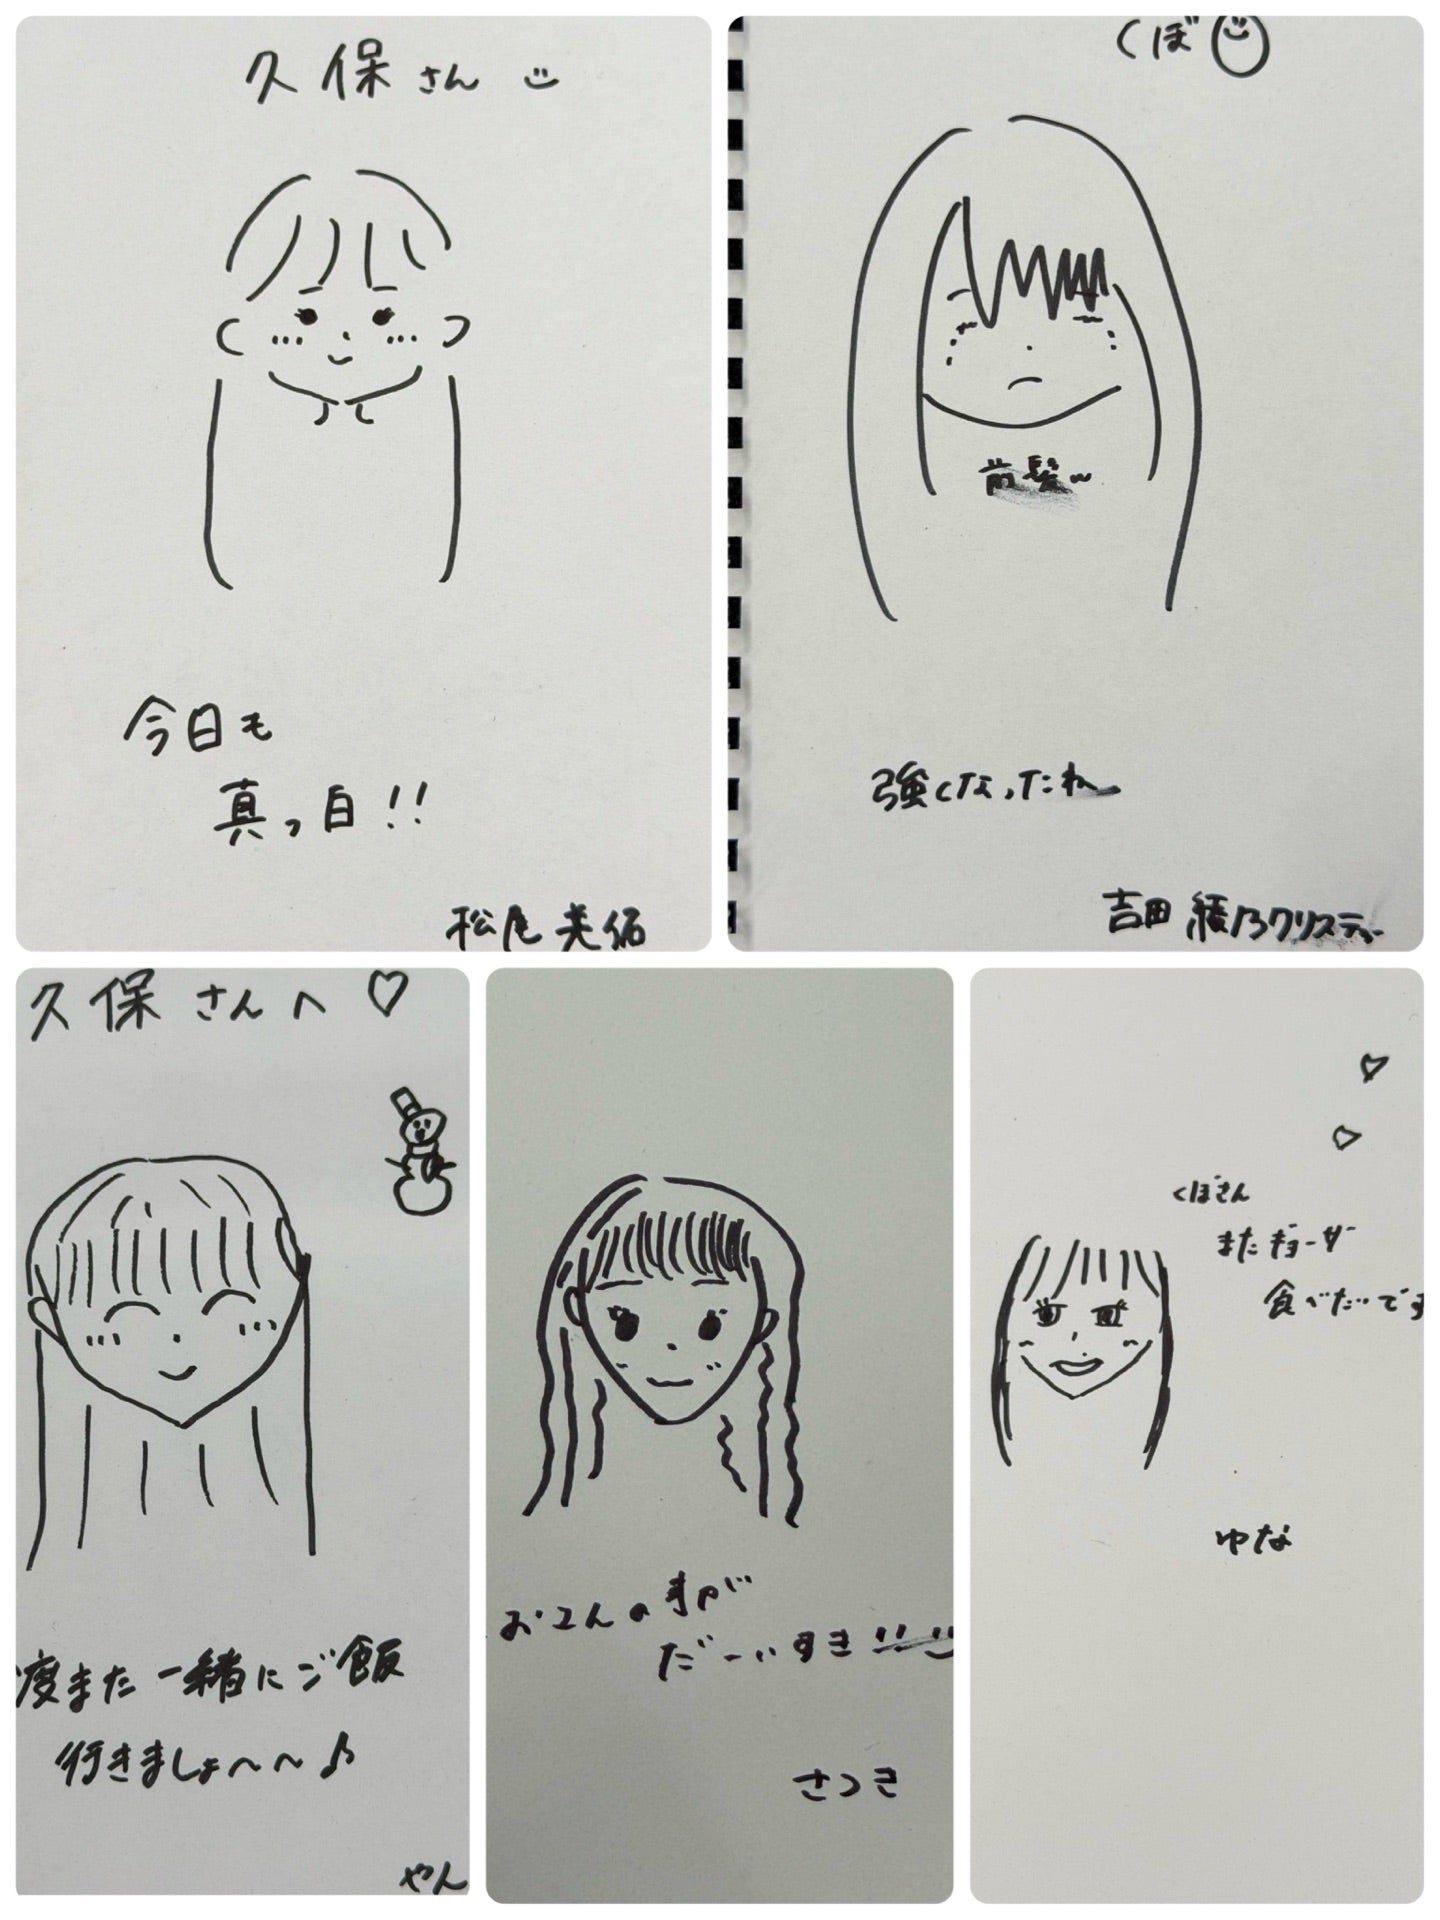 久保さん
今日も
真っ白!!
松尾美佑
くぼ
前髪~
強くなったね
吉田綾乃クリスティー
久保さんへ♡
度また一緒にご飯
行きましょ〜〜♪
やん
だーいすき!!
さつき
くぼさん
またギョーザ
食べたいです
ゆな